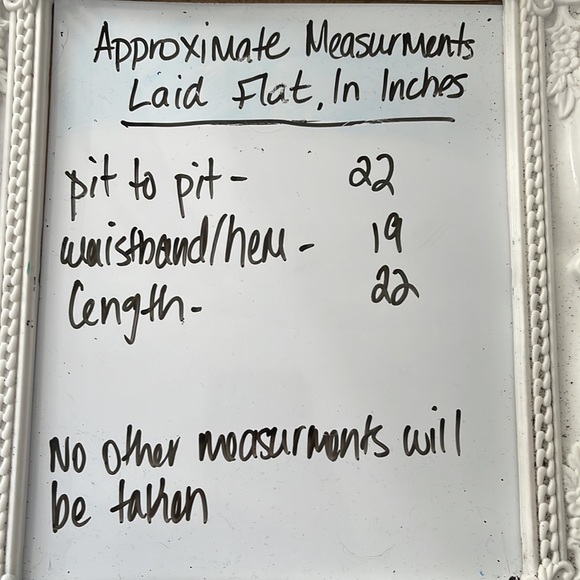 Approximate Measurments
Laid Flat, In Inches
pit to pit - 22
waistband/hem - 19
length - 22
No other measurments will
be taken